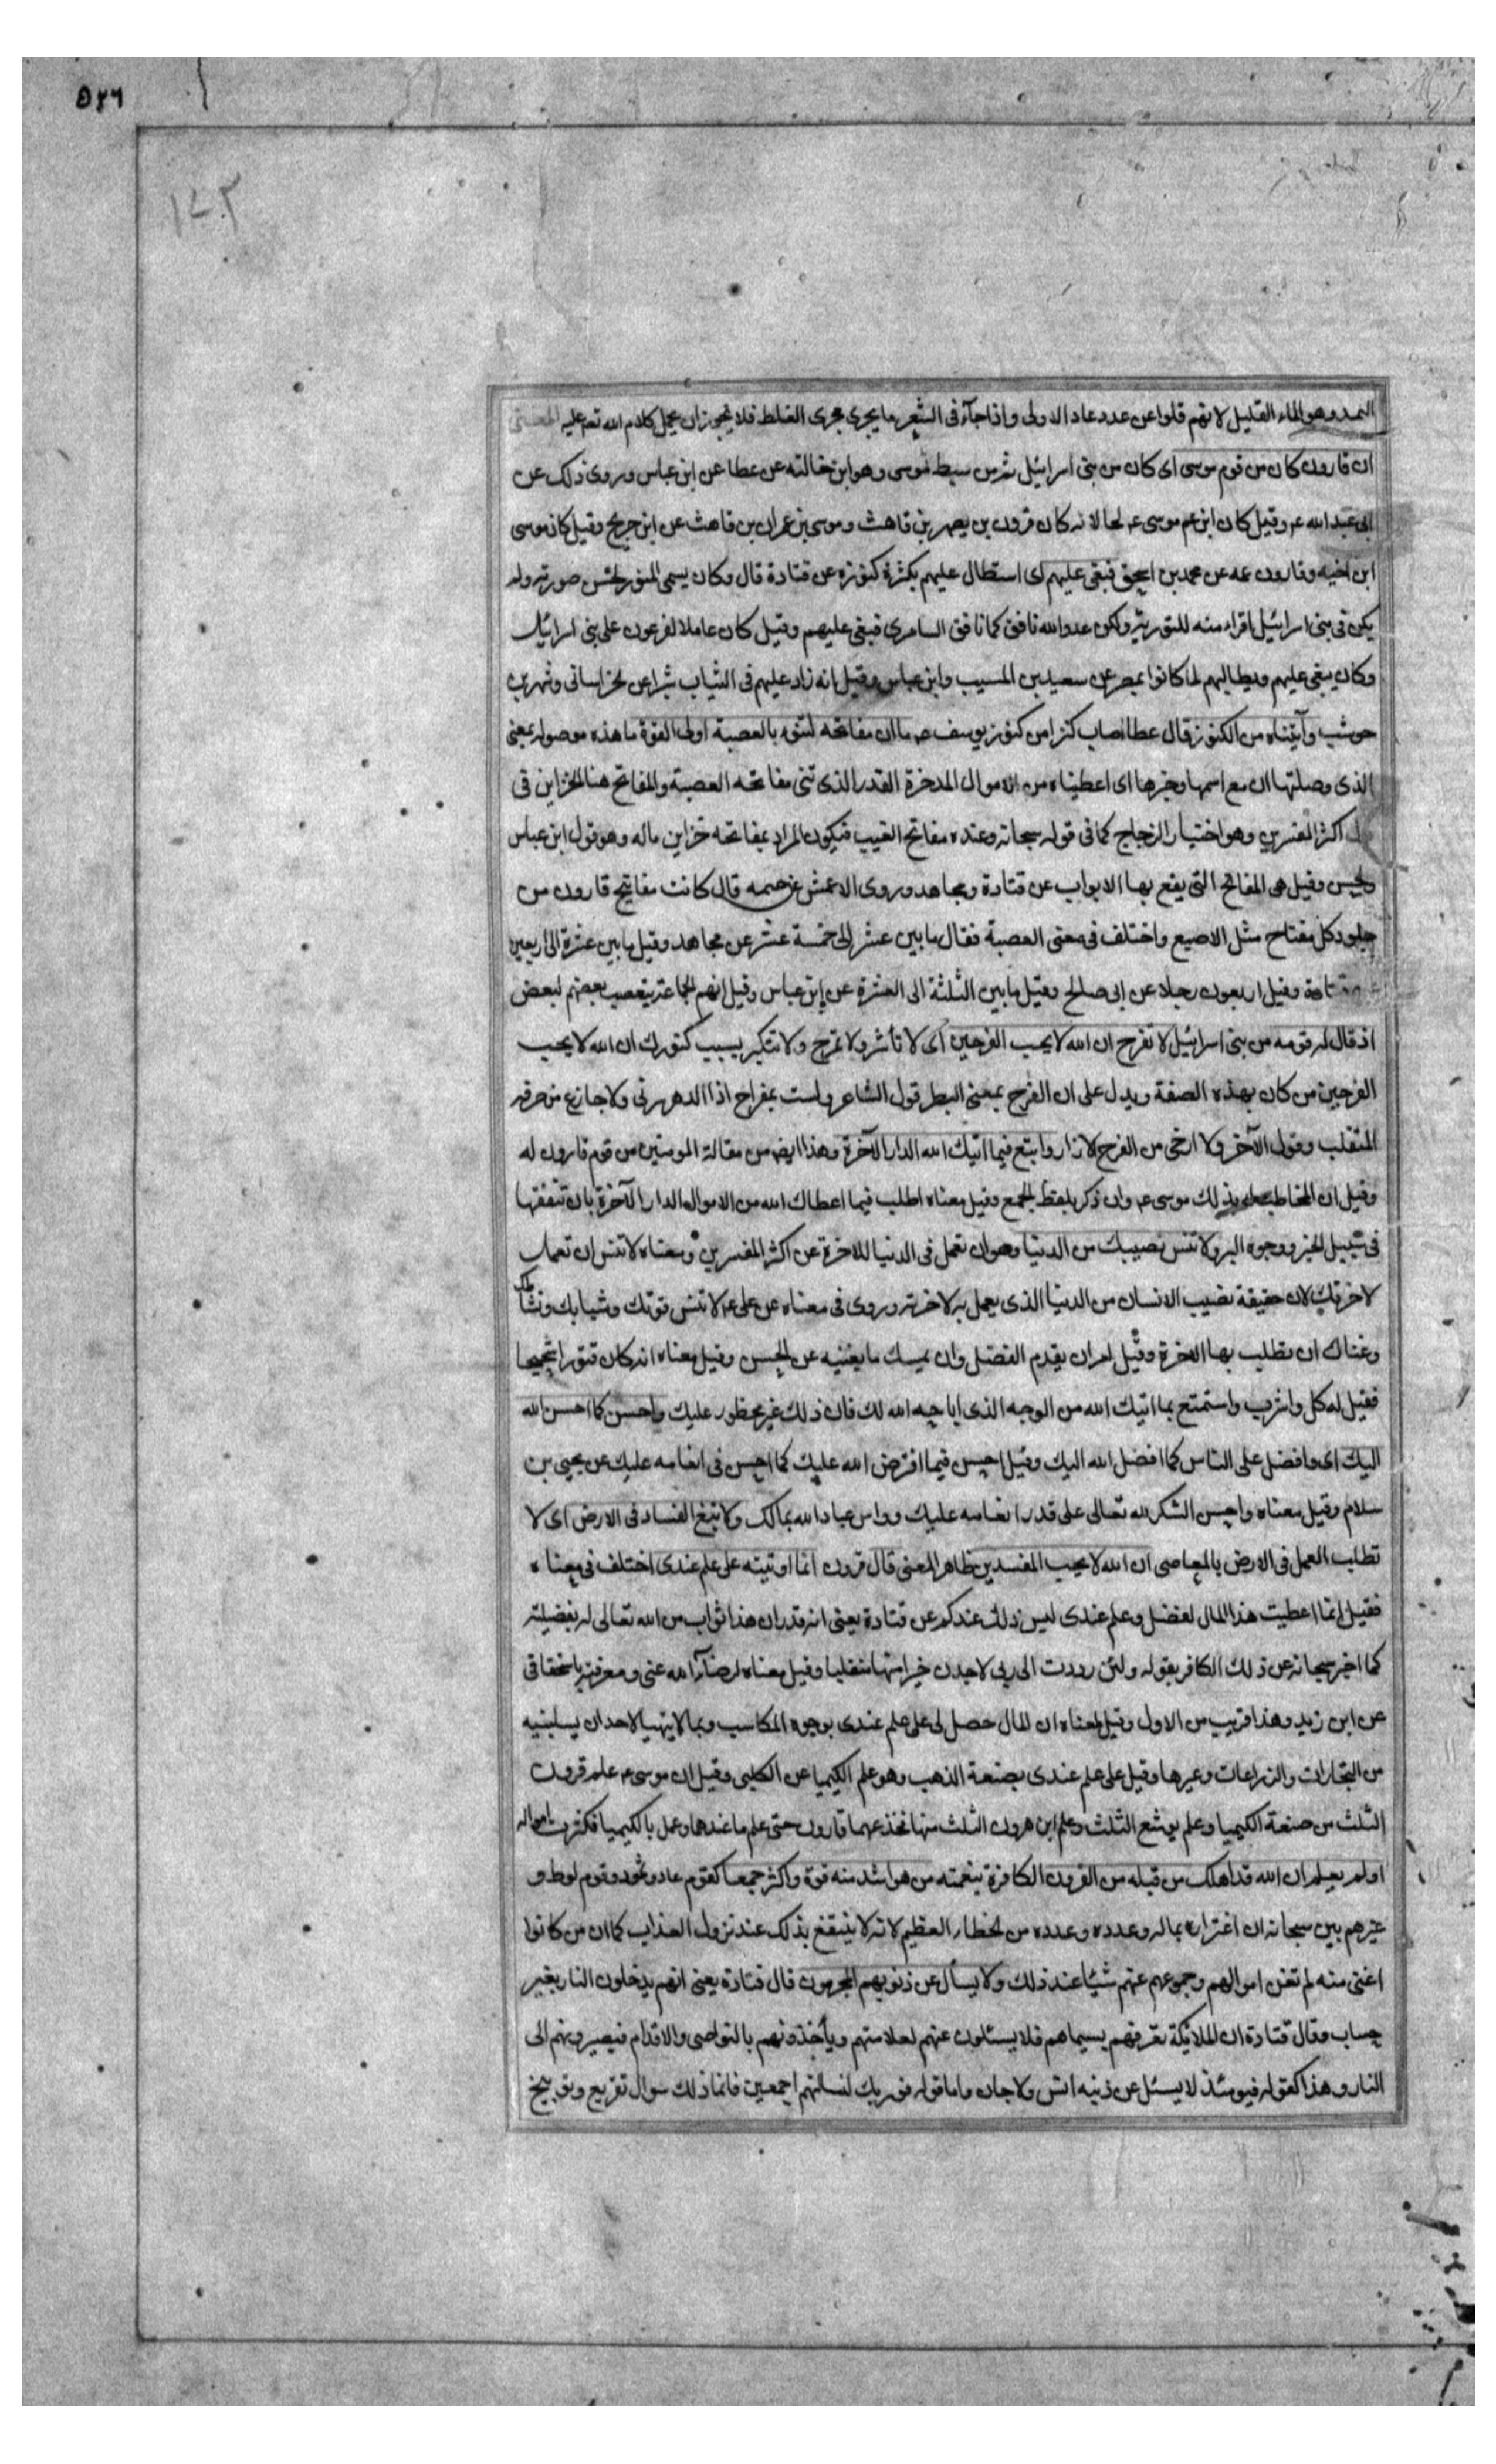 ٥٤٦
١٧٣
الثمد وهو الماء القليل لانهم قلوا عن عدد عاد الاولى واذا جآء فى الشعر ما يجرى مجرى الغلط فلا يجوز ان يحمل كلام الله تعم عليه المعنى
ان قارون كان من قوم موسى اى كان من بنى اسرائيل ثم من سبط موسى وهو ابن خالته عن عطا عن ابن عباس وروى ذلك عن
ابى عبد الله عم وقيل كان ابن عم موسى عم لحا لانه كان قرون بن يصهر بن قاهث وموسى بن عمران بن قاهث عن ابن جريح وقيل كان موسى
ابن اخيه وقارون عمه عن محمد بن اسحق فبغى عليهم اى استطال عليهم بكثرة كنوزه عن قتادة قال وكان يسمى المنور لحسن صورته ولم
يكن فى بنى اسرائيل اقراء منه للتورية ولكن عدو الله نافق كما نافق السامرى فبغى عليهم وقيل كان عاملا لفرعون على بنى اسرائيل
وكان يبغى عليهم ويطالبهم لما كانوا بمصر عن سعيد بن المسيب وابن عباس وقيل انه زاد عليهم فى الثياب شبرا عن لخراسانى وشهر بن
حوشب وآتيناه من الكنوز قال عطا اصاب كنزا من كنوز يوسف عم ما ان مفاتحه لتنوء بالعصبة اولى القوة ما هذه موصوله بمعنى
الذى وصلتها ان مع اسمها وخبرها اى اعطيناه من الاموال المدخرة القدر الذى تنى مفاتحه العصبة والمفاتح هنا الخزاين فى
قول اكثر المفسرين وهو اختيار الزجاج كما فى قوله سبحانه وعنده مفاتح الغيب فيكون المراد بمفاتحه خزاين ماله وهو قول ابن عباس
ولحسن وقيل هى المفاتح التى يفتح بها الابواب عن قتادة ومجاهد وروى الاعمش عن خيثمه قال كانت مفاتيح قارون من
جلود كل مفتاح مثل الاصبع واختلف فى معنى العصبة فقال ما بين عشر الى خمسة عشر عن مجاهد وقيل ما بين عشرة الى اربعين
عن قتادة وقيل اربعون رجلا عن ابى صالح وقيل ما بين الثلثة الى العشرة عن ابن عباس وقيل انهم الجماعة يتعصب بعضهم لبعض
اذ قال له قومه من بنى اسرائيل لا تفرح ان الله لا يحب الفرحين اى لا تأشر ولا تمرح ولا تتكبر بسبب كنوزك ان الله لا يحب
الفرحين من كان بهذه الصفة ويدل على ان الفرح بمعنى البطر قول الشاعر ولست بمفراح اذا الدهر سرنى ولا جازع من صرفه
المتقلب وقول الآخر ولا ارخى من الفرح الازار وابتغ فيما اتيك الله الدار الآخرة وهذا ايض من مقالة المومنين من قوم قارون له
وقيل ان المخاطب له بذلك موسى عم وان ذكر بلفظ الجمع وقيل معناه اطلب فيما اعطاك الله من الاموال الدار الآخرة بان تنفقها
فى سبيل الخير ووجوه البر ولا تنس نصيبك من الدنيا وهو ان تعمل فى الدنيا للاخرة عن اكثر المفسرين ومعناه لا تنس ان تعمل
لاخرتك لان حقيقة نصيب الانسان من الدنيا الذى يعمل به لاخرته وروى فى معناه عن على عم لا تنس قوتك وشبابك ونشاطك
وغناك ان تطلب بها الاخرة وقيل امر ان يقدم الفضل وان يمسك ما يغنيه عن الحسن وقيل معناه انه كان قتورا شحيحا
فقيل له كل واشرب واستمتع بما اتيك الله من الوجه الذى اباحه الله لك فان ذلك غير محظور عليك واحسن كما احسن الله
اليك اى وافضل على الناس كما افضل الله اليك وقيل احسن فيما افترض الله عليك كما احسن فى انعامه عليك عن يحيى بن
سلام وقيل معناه واحسن الشكر لله تعالى على قدر انعامه عليك وواس عباد الله بمالك ولا تبغ الفساد فى الارض اى لا
تطلب العمل فى الارض بالمعاصى ان الله لا يحب المفسدين ظاهر المعنى قال قرون انما اوتيته على علم عندى اختلف فى معناه
فقيل انما اعطيت هذا المال لفضل وعلم عندى ليس ذلك عندكم عن قتادة يعنى انه قدر ان هذا ثواب من الله تعالى له بفضيلته
كما اخبر سبحانه عن ذلك الكافر بقوله ولئن رددت الى ربى لاجدن خيرا منها منقلبا وقيل معناه لرضآء الله عنى ومعرفته باستحقاقى
عن ابن زيد وهذا قريب من الاول وقيل معناه ان المال حصل لى على علم عندى بوجوه المكاسب وبما لا يتهيا لاحد ان يسلبنيه
من التجارات والزراعات وغيرها وقيل على علم عندى بصنعة الذهب وهو علم الكيميا عن الكلبى وقيل ان موسى عم علم قرون
الثلث من صنعة الكيميا وعلم يوشع الثلث وعلم ابن هرون الثلث منها فخذعهما قارون حتى علم ما عندهما وعمل بالكيميا فكثرت امواله
اولم يعلم ان الله قد اهلك من قبله من القرون الكافرة بنعمته من هو اشد منه قوة واكثر جمعا كقوم عاد وثمود وقوم لوط و
غيرهم بين سبحانه ان اغتراره بماله وعدده وعدده من لخطاء العظيم لانه لا ينتفع بذلك عند نزول العذاب كما ان من كانوا
اغنى منه لم تغن اموالهم وجموعهم عنهم شيئا عند ذلك ولا يسأل عن ذنوبهم المجرمون قال قتادة يعنى انهم يدخلون النار بغير
حساب وقال قتادة ان الملائكة تعرفهم بسيماهم فلا يسئلون عنهم لعلامتهم ويأخذونهم بالنواصى والاقدام فيصيرونهم الى
النار وهذا كقوله فيومئذ لا يسئل عن ذنبه انس ولا جان واما قوله فوربك لنسئلنهم اجمعين فانما ذلك سوال تقريع وتوبيخ